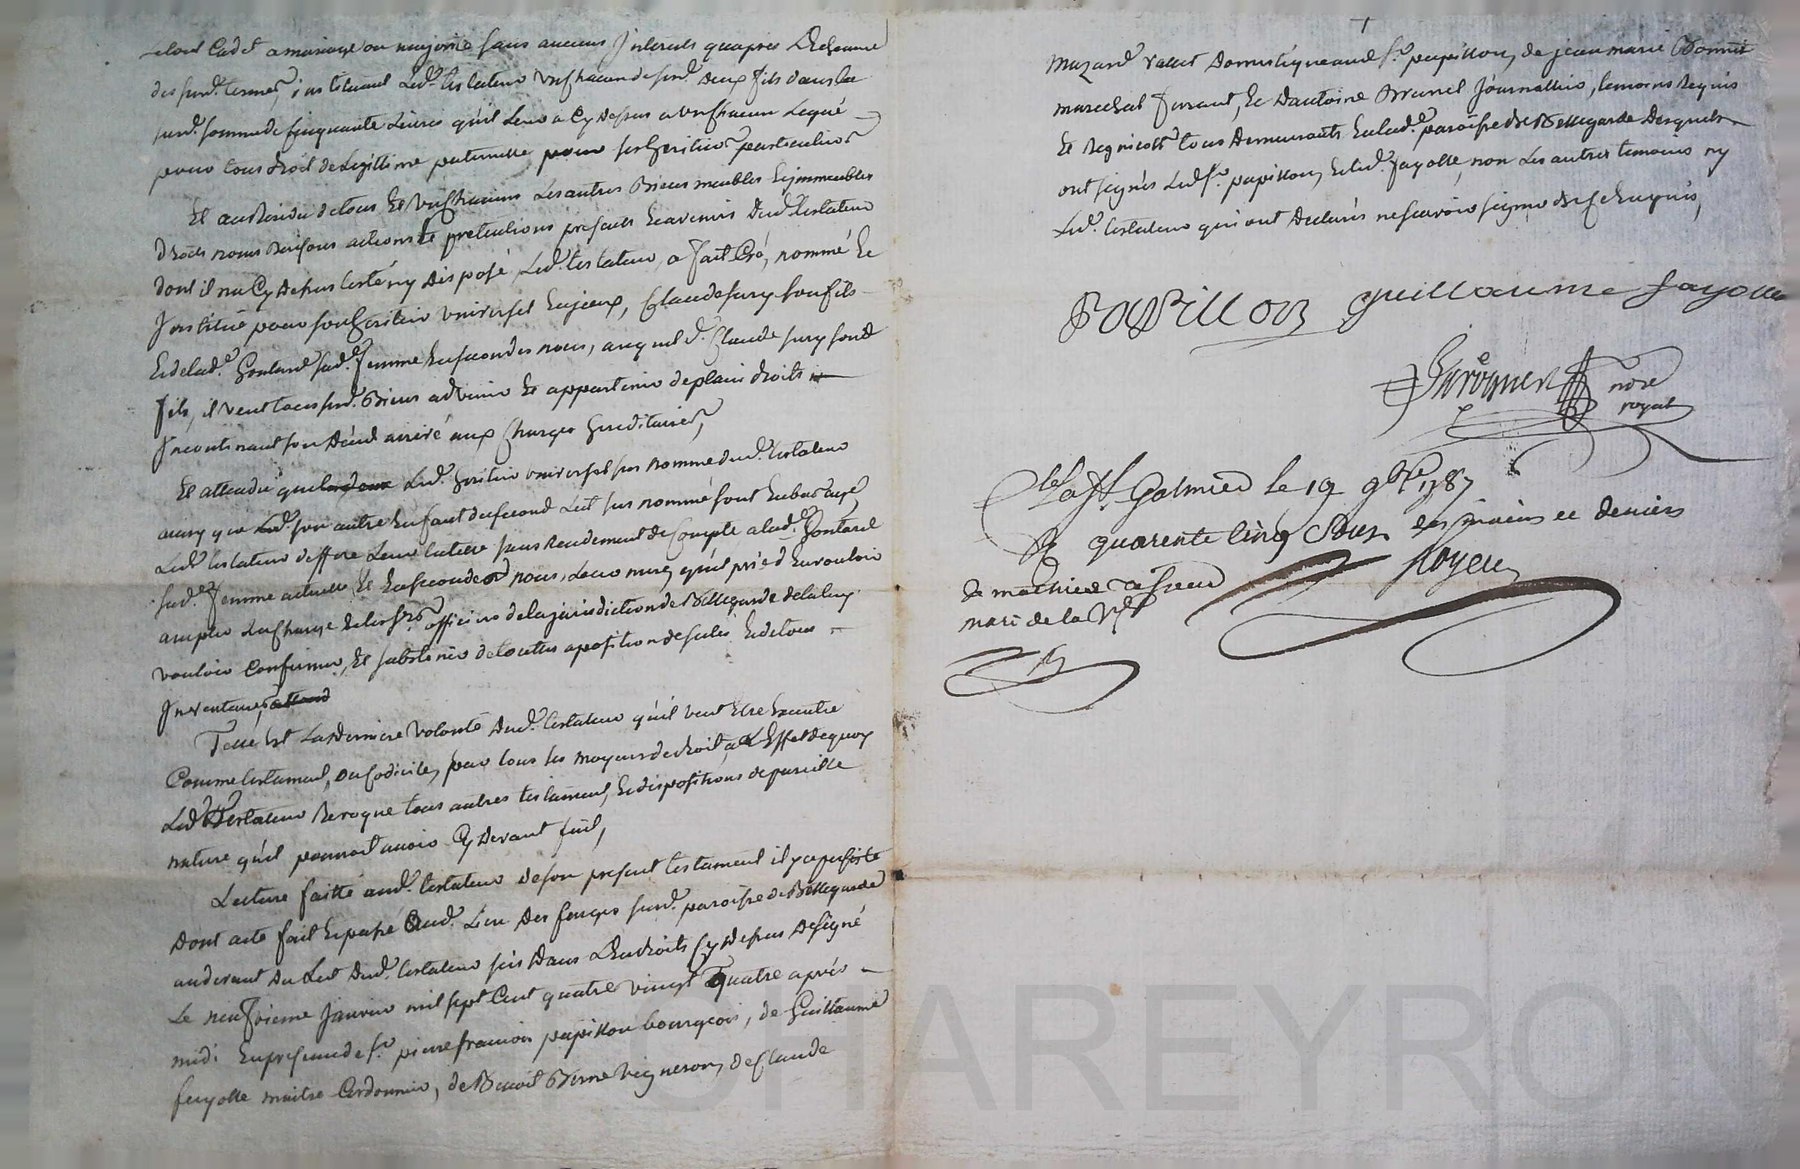 cadet a mariage ou majorité sans aucuns Interests qu'apres Lecheance
des susd. termes, instituant Led. testateur unchacun desd. deux fils dans la
susd. somme de cinquante Livres qu'il Leur a Cy dessus a unchacun Legué
pour tous droit de Legittime paternelle pour ses heritiers particuliers
Et au Residu de tous Et unchacuns Les autres Biens meubles Et immeubles
droits noms Raisons actions Et pretentions presents Et avenirs dud. testateur
dont il n'a Cy dessus testé ny disposé Led. testateur, a fait Créé, nommé Et
Institué pour son heritier universel Et Claude Jury son fils
Et de lad. Gontard sad. femme En secondes noces, auquel d. Claude Jury son d.
fils, il veut tous susd. Biens advenir Et appartenir de plain droits
Incontinant son décéd arrivé aux Charges hereditaires,
Et attendu que Led. heritier universel sus nommé dud. testateur
ainsy que son autre Enfant du second Lit sus nommé sont En bas aage,
Led. testateur deffere Leur tutelle sans Rendement de Compte a lad. Gontard
sad. femme actuelle Et En secondes noces, Leur mere, qu'il prie d'En vouloir
accepter La Charge Et les srs officiers de la jurisdiction de Bellegarde de la luy
vouloir Confirmer, Et s'abstenir de toutes aposition de scelés Et de tous
Inventaires,
Telle Est La derniere volonté dud. testateur qu'il veut Etre Executée
Comme testament, ou Codicile, par tous les moyens de droit, a L'Effet de quoy
Led. testateur Revoque tous autres testament, Et dispositions de pareille
nature qu'il pourroit avoir Cy devant fait,
Lecture faitte aud. testateur de son present testament il y a persisté
dont acte fait Et passé aud. Lieu des farges susd. paroisse de Bellegarde
au devant du Lit dud. testateur sis dans L'Endroits Cy dessus désigné
Le neufvieme Janvier mil sept Cent quatre vingt quatre après
midi En presence de sr. pierre francois papillon bourgeois, de Guillaume
fayolle maitre Cordonnier, de Benoit Berne vigneron, de Claude
Mazard valet domestique aud. sr. papillon, de jean marie
marechal ferrant, Et d'antoine Brunel Journallier, temoins Requis
Et Regnicoles tous demeurants En lad. paroisse de Bellegarde desquels
ont signés Led. sr. papillon, Et led. fayolle, non Les autres temoins ny
Led. testateur qui ont declarés ne scavoir signer de ce Enquis,
PAPillon guillaume fayolle
nore
royal
a St. Galmier le 19 9bre 1787
quarente cinq sous des mains et deniers
de mathieu
mari de la